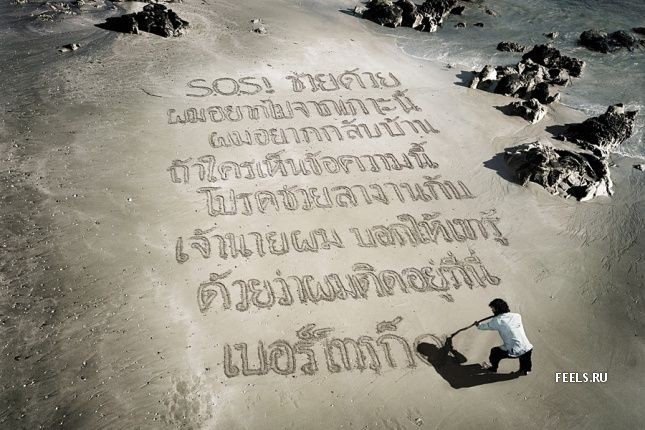 S.O.S! ช่วยด้วย
ผมอยากไปจากเกาะนี้
ผมอยากกลับบ้าน
ถ้าใครเห็นข้อความนี้
โปรดช่วยลางานกับ
เจ้านายผม บอกให้เขารู้
ด้วยว่าผมติดอยู่ที่นี่
เบอร์โทรก็
FEELS.RU